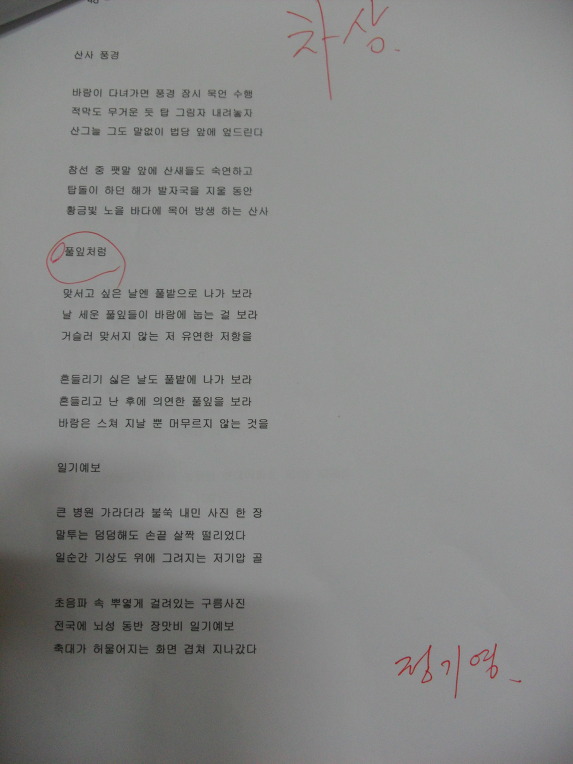 차상.
산사 풍경
바람이 다녀가면 풍경 잠시 묵언 수행
적막도 무거운 듯 탑 그림자 내려놓자
산그늘 그도 말없이 법당 앞에 엎드린다
참선 중 팻말 앞에 산새들도 숙연하고
탑돌이 하던 해가 발자국을 지울 동안
황금빛 노을 바다에 목어 방생 하는 산사
풀잎처럼
맞서고 싶은 날엔 풀밭으로 나가 보라
날 세운 풀잎들이 바람에 눕는 걸 보라
거슬러 맞서지 않는 저 유연한 저항을
흔들리기 싫은 날도 풀밭에 나가 보라
흔들리고 난 후에 의연한 풀잎을 보라
바람은 스쳐 지날 뿐 머무르지 않는 것을
일기예보
큰 병원 가라더라 불쑥 내민 사진 한 장
말투는 덤덤해도 손끝 살짝 떨리었다
일순간 기상도 위에 그려지는 저기압 골
초음파 속 뿌옇게 걸려있는 구름사진
전국에 뇌성 동반 장맛비 일기예보
축대가 허물어지는 화면 겹쳐 지나갔다
정기영.